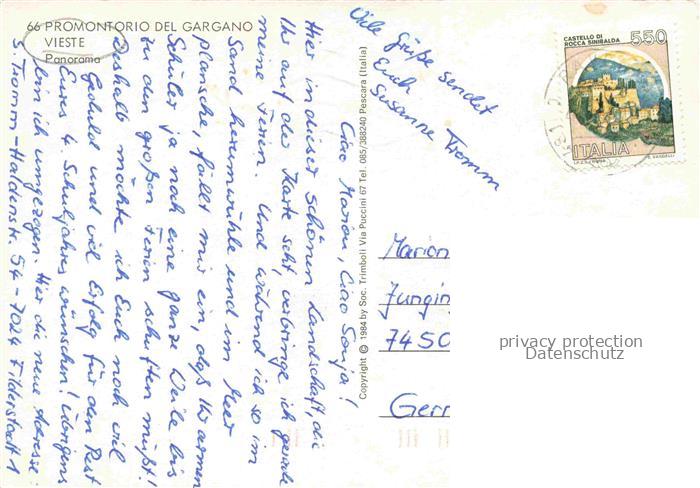 66 PROMONTORIO DEL GARGANO
VIESTE
Panorama
Ciao Marion, Ciao Sonja!
Hier in dieser schönen Landschaft, die
Ihr auf der Karte seht, verbringe ich gerade
meine Ferien. Und während ich so im
Sand herumwühle und im Meer
plansche, fällt mir ein, daß Ihr armen
Schüler ja noch eine ganze Weile bis
zu den großen Ferien schuften müßt!
Deshalb möchte ich Euch noch viel
Geduld und viel Erfolg für den Rest
Eures 4. Schuljahres wünschen! Übrigens
bin ich umgezogen. Hier die neue Adresse:
S. Tromm - Haldenstr. 54 - 7024 Filderstadt 1
Viele Grüße sendet
Euch
Susanne Tromm
Copyright © 1984 by Soc. Trimboli Via Puccini 67 Tel. 085/388240 Pescara (Italia)
CASTELLO DI
ROCCA SINIBALDA
550
ITALIA
Marion
Junging
7450
Germ
privacy protection
Datenschutz